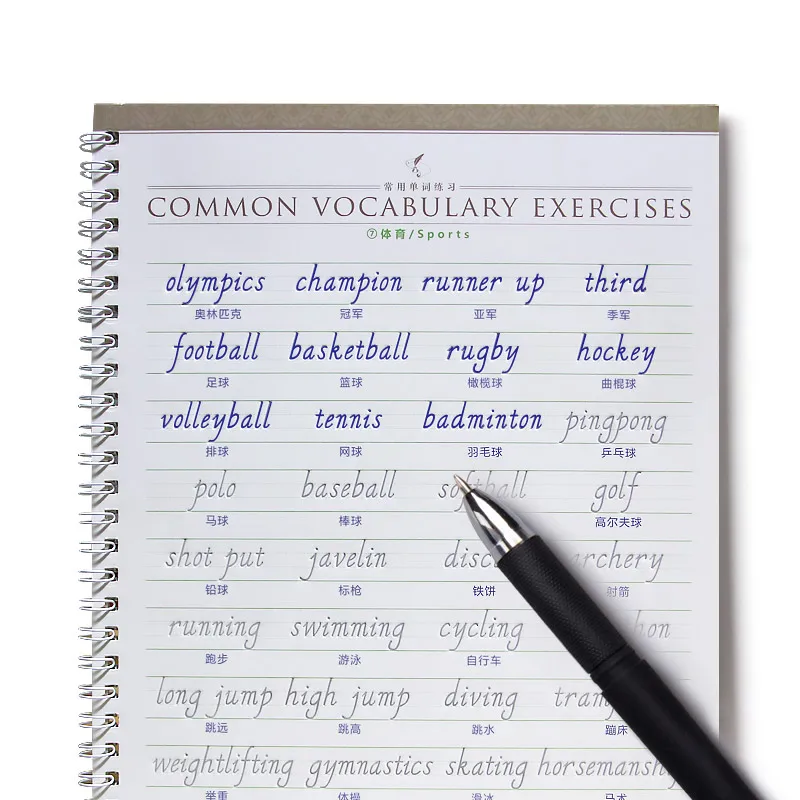 常用单词练习
COMMON VOCABULARY EXERCISES
⑦体育/Sports
olympics champion runner up third
奥林匹克 冠军 亚军 季军
football basketball rugby hockey
足球 篮球 橄榄球 曲棍球
volleyball tennis badminton pingpong
排球 网球 羽毛球 乒乓球
polo baseball softball golf
马球 棒球 高尔夫球
shot put javelin archery
铅球 标枪 铁饼 射箭
running swimming cycling
跑步 游泳 自行车
long jump high jump diving
跳远 跳高 跳水 蹦床
weightlifting gymnastics skating horsemanship
举重 体操 滑冰 马术